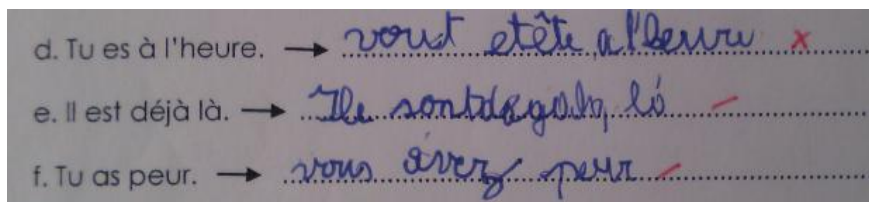 d. Tu es à l'heure. → vout etête a l'heure
e. Il est déjà là. → Ile sont là
f. Tu as peur. → vous avez peur